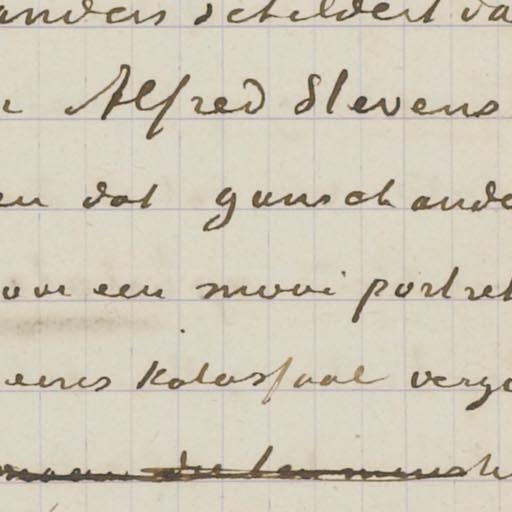 anders schildert da
r Alfred Stevens
en dat gansch ande
voor een mooi portret
eens kolossaal verge